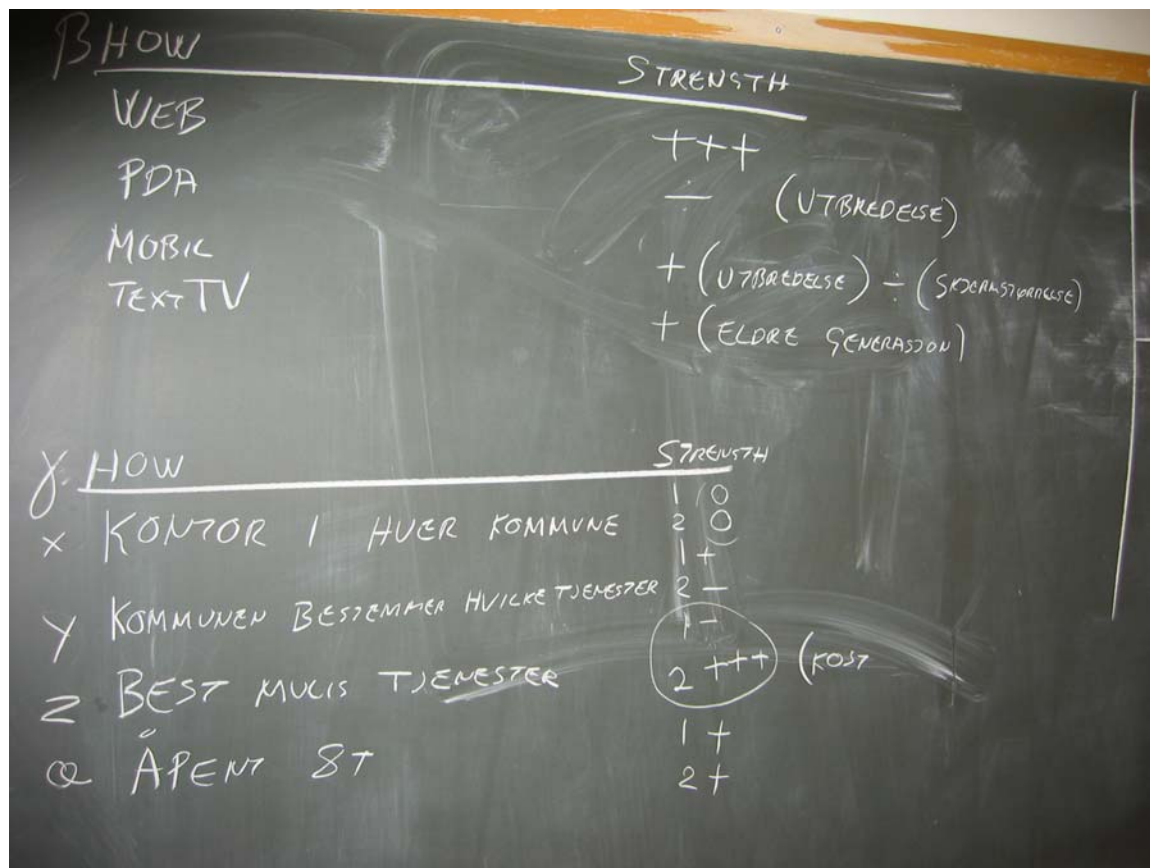 β HOW STRENGTH
WEB +++
PDA ÷ (UTBREDELSE)
MOBIL + (UTBREDELSE) ÷ (SKJERMSTØRRELSE)
TEXT TV + (ELDRE GENERASJON)
γ. HOW STRENGTH
1 0
x KONTOR I HVER KOMMUNE 2 0
1 +
y KOMMUNEN BESTEMMER HVILKE TJENESTER 2 -
1 -
z BEST MULIG TJENESTER 2 +++ (KOST
1 +
ÅPENT 8T
2 +